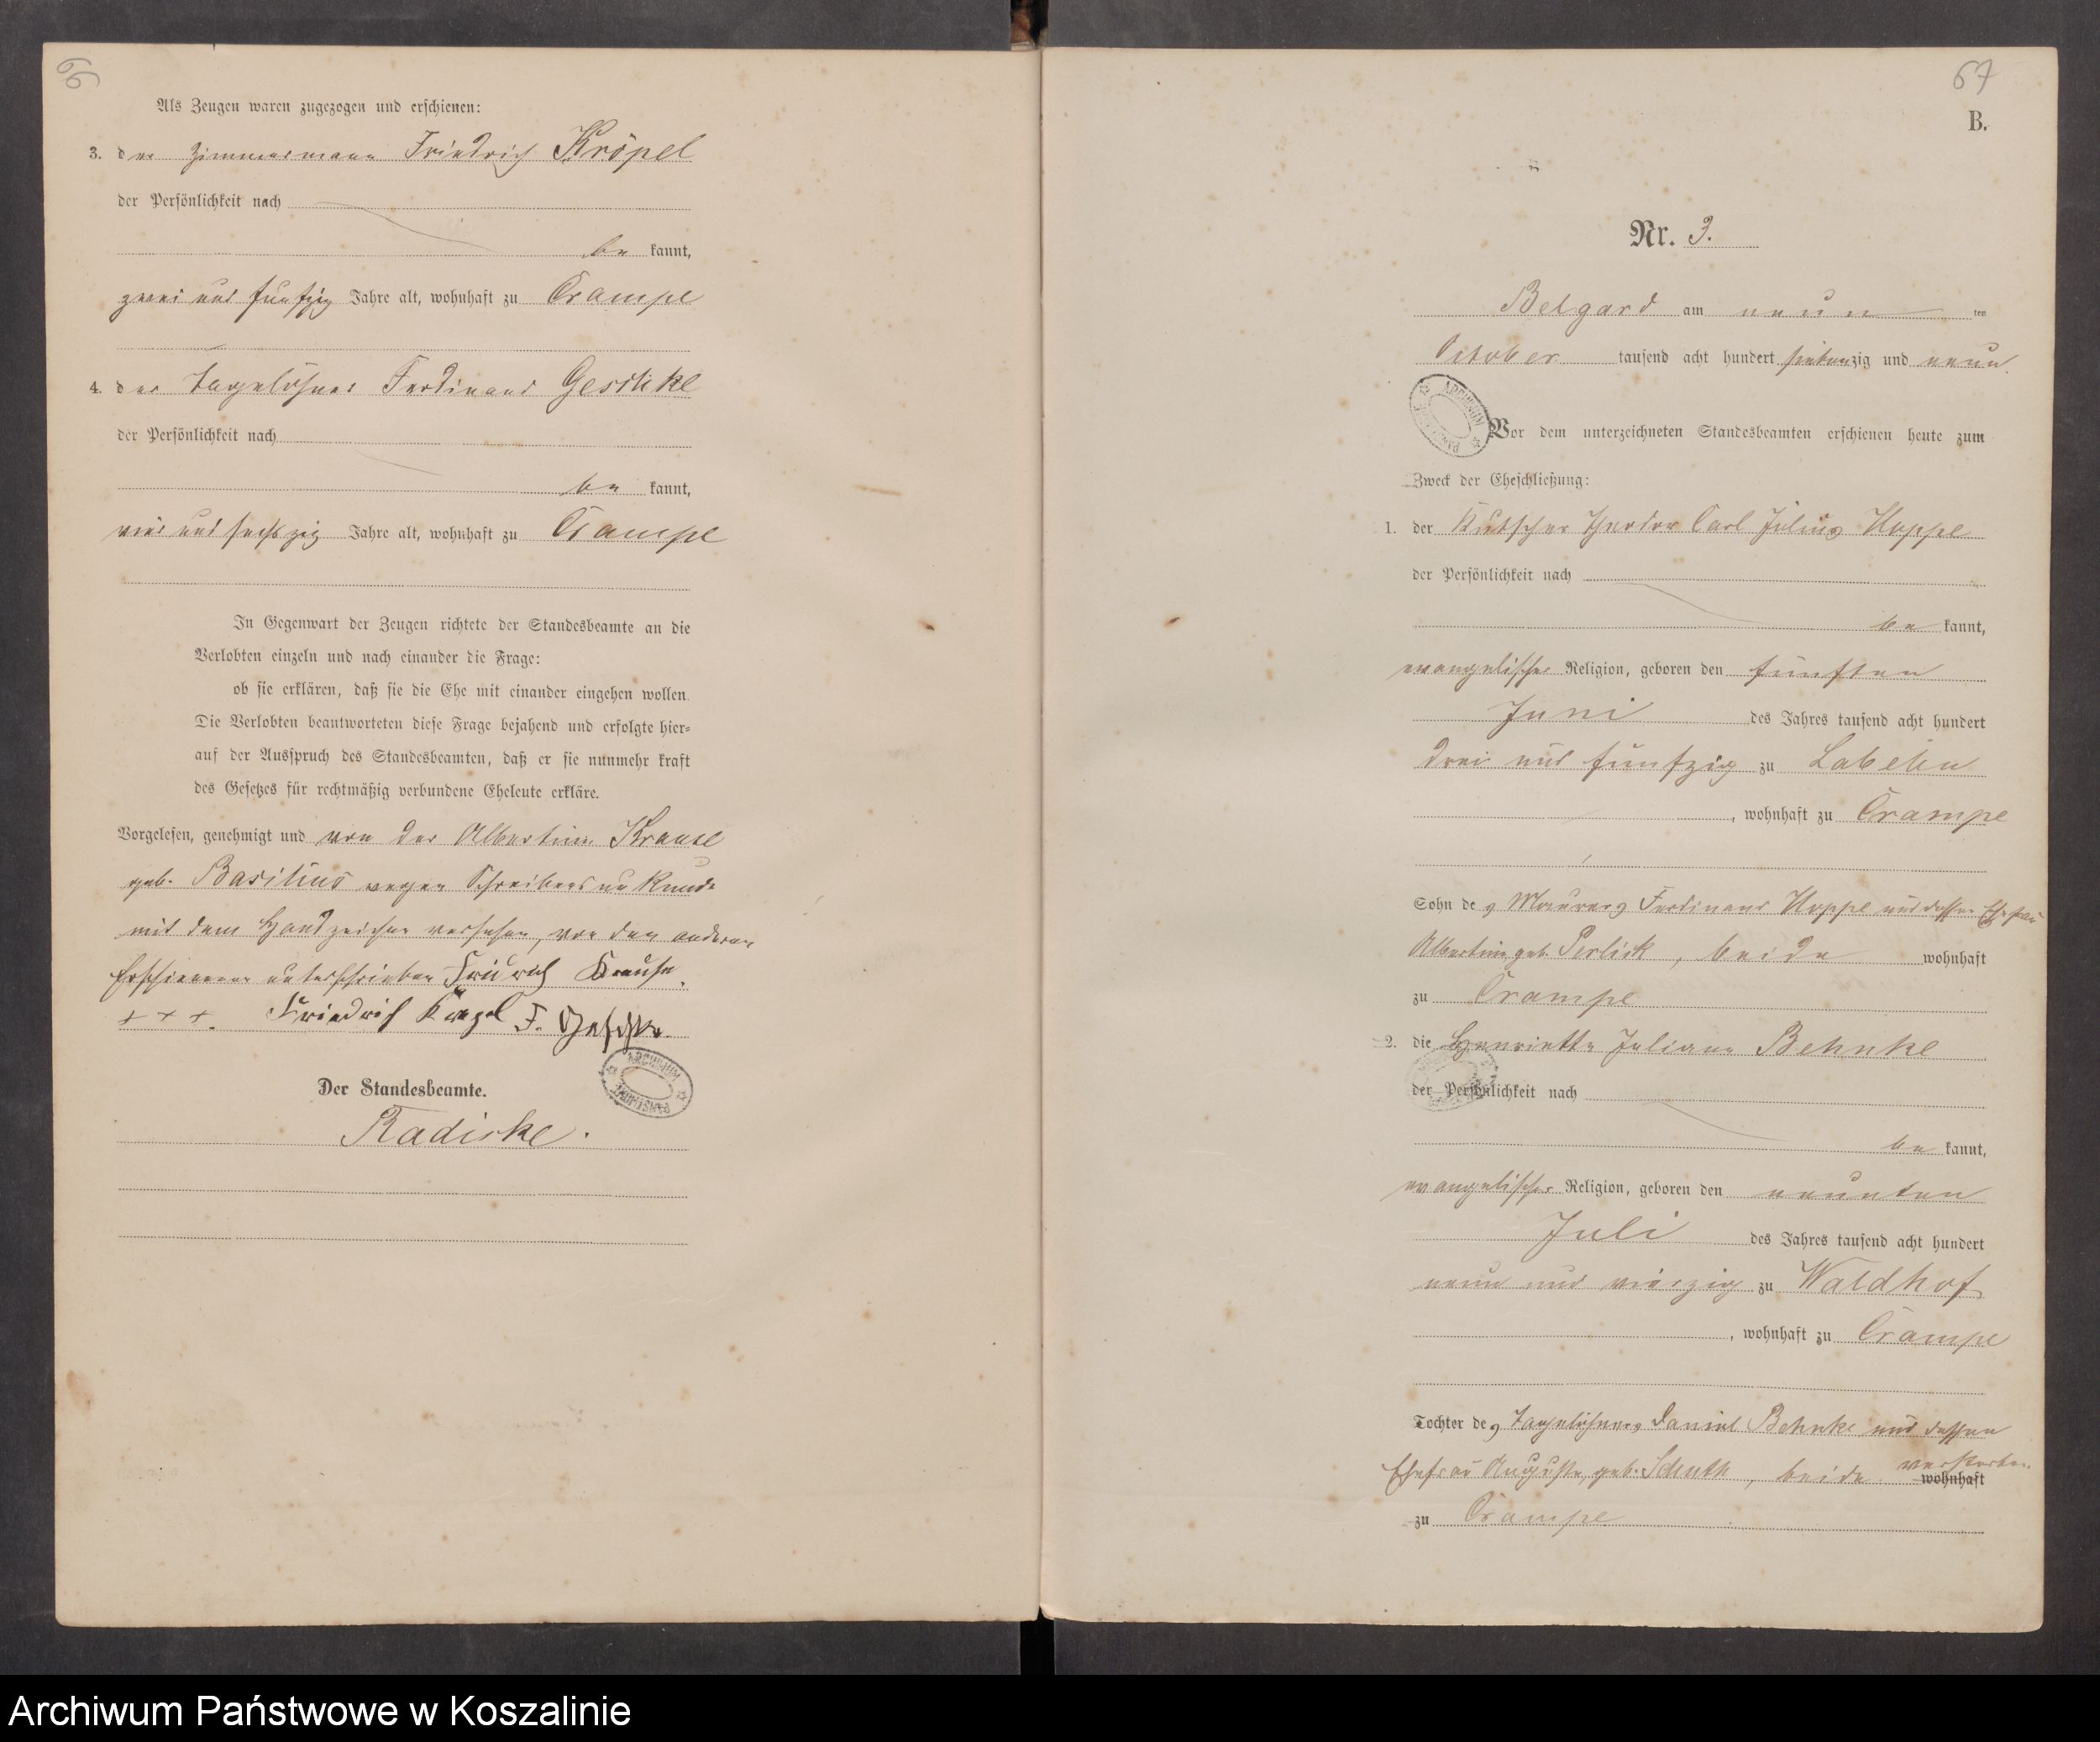 66
Als Zeugen waren zugezogen und erschienen:
3. der Zimmermann Friedrich Kröpel
der Persönlichkeit nach
be kannt,
zwei und fünfzig Jahre alt, wohnhaft zu Crampe
4. der Tagelöhner Ferdinand Geschke
der Persönlichkeit nach
be kannt,
vier und sechszig Jahre alt, wohnhaft zu Crampe
In Gegenwart der Zeugen richtete der Standesbeamte an die
Verlobten einzeln und nach einander die Frage:
ob sie erklären, daß sie die Ehe mit einander eingehen wollen.
Die Verlobten beantworteten diese Frage bejahend und erfolgte hier-
auf der Ausspruch des Standesbeamten, daß er sie nunmehr kraft
des Gesetzes für rechtmäßig verbundene Eheleute erkläre.
Vorgelesen, genehmigt und von der Albertine Krause
geb. Basilius wegen Schreibensunkunde
mit dem Handzeichen versehen, von den anderen
Erschienenen unterschrieben Friedrich Krause.
+ + +. Friedrich Kröpel F. Geschke.
Der Standesbeamte.
Radiske.
ARCHIWUM PAŃSTWOWE
67
B.
Nr. 3.
Belgard am neun ten
October tausend acht hundert siebenzig und neun.
ARCHIWUM PAŃSTWOWE
Vor dem unterzeichneten Standesbeamten erschienen heute zum
Zweck der Eheschließung:
1. der Kutscher Theodor Carl Julius Hoppe
der Persönlichkeit nach
be kannt,
evangelischer Religion, geboren den fünften
Juni des Jahres tausend acht hundert
drei und fünfzig zu Labehn
, wohnhaft zu Crampe
Sohn des Maurers Ferdinand Hoppe und dessen Ehefrau
Albertine geb. Perlick, beide wohnhaft
zu Crampe
2. die Henriette Juliane Behnke
der Persönlichkeit nach
be kannt,
evangelischer Religion, geboren den neunten
Juli des Jahres tausend acht hundert
neun und vierzig zu Waldhof
, wohnhaft zu Crampe
Tochter des Tagelöhners Daniel Behnke und dessen
Ehefrau Auguste, geb. Schuth, beide verstorben wohnhaft
zu Crampe
Archiwum Państwowe w Koszalinie